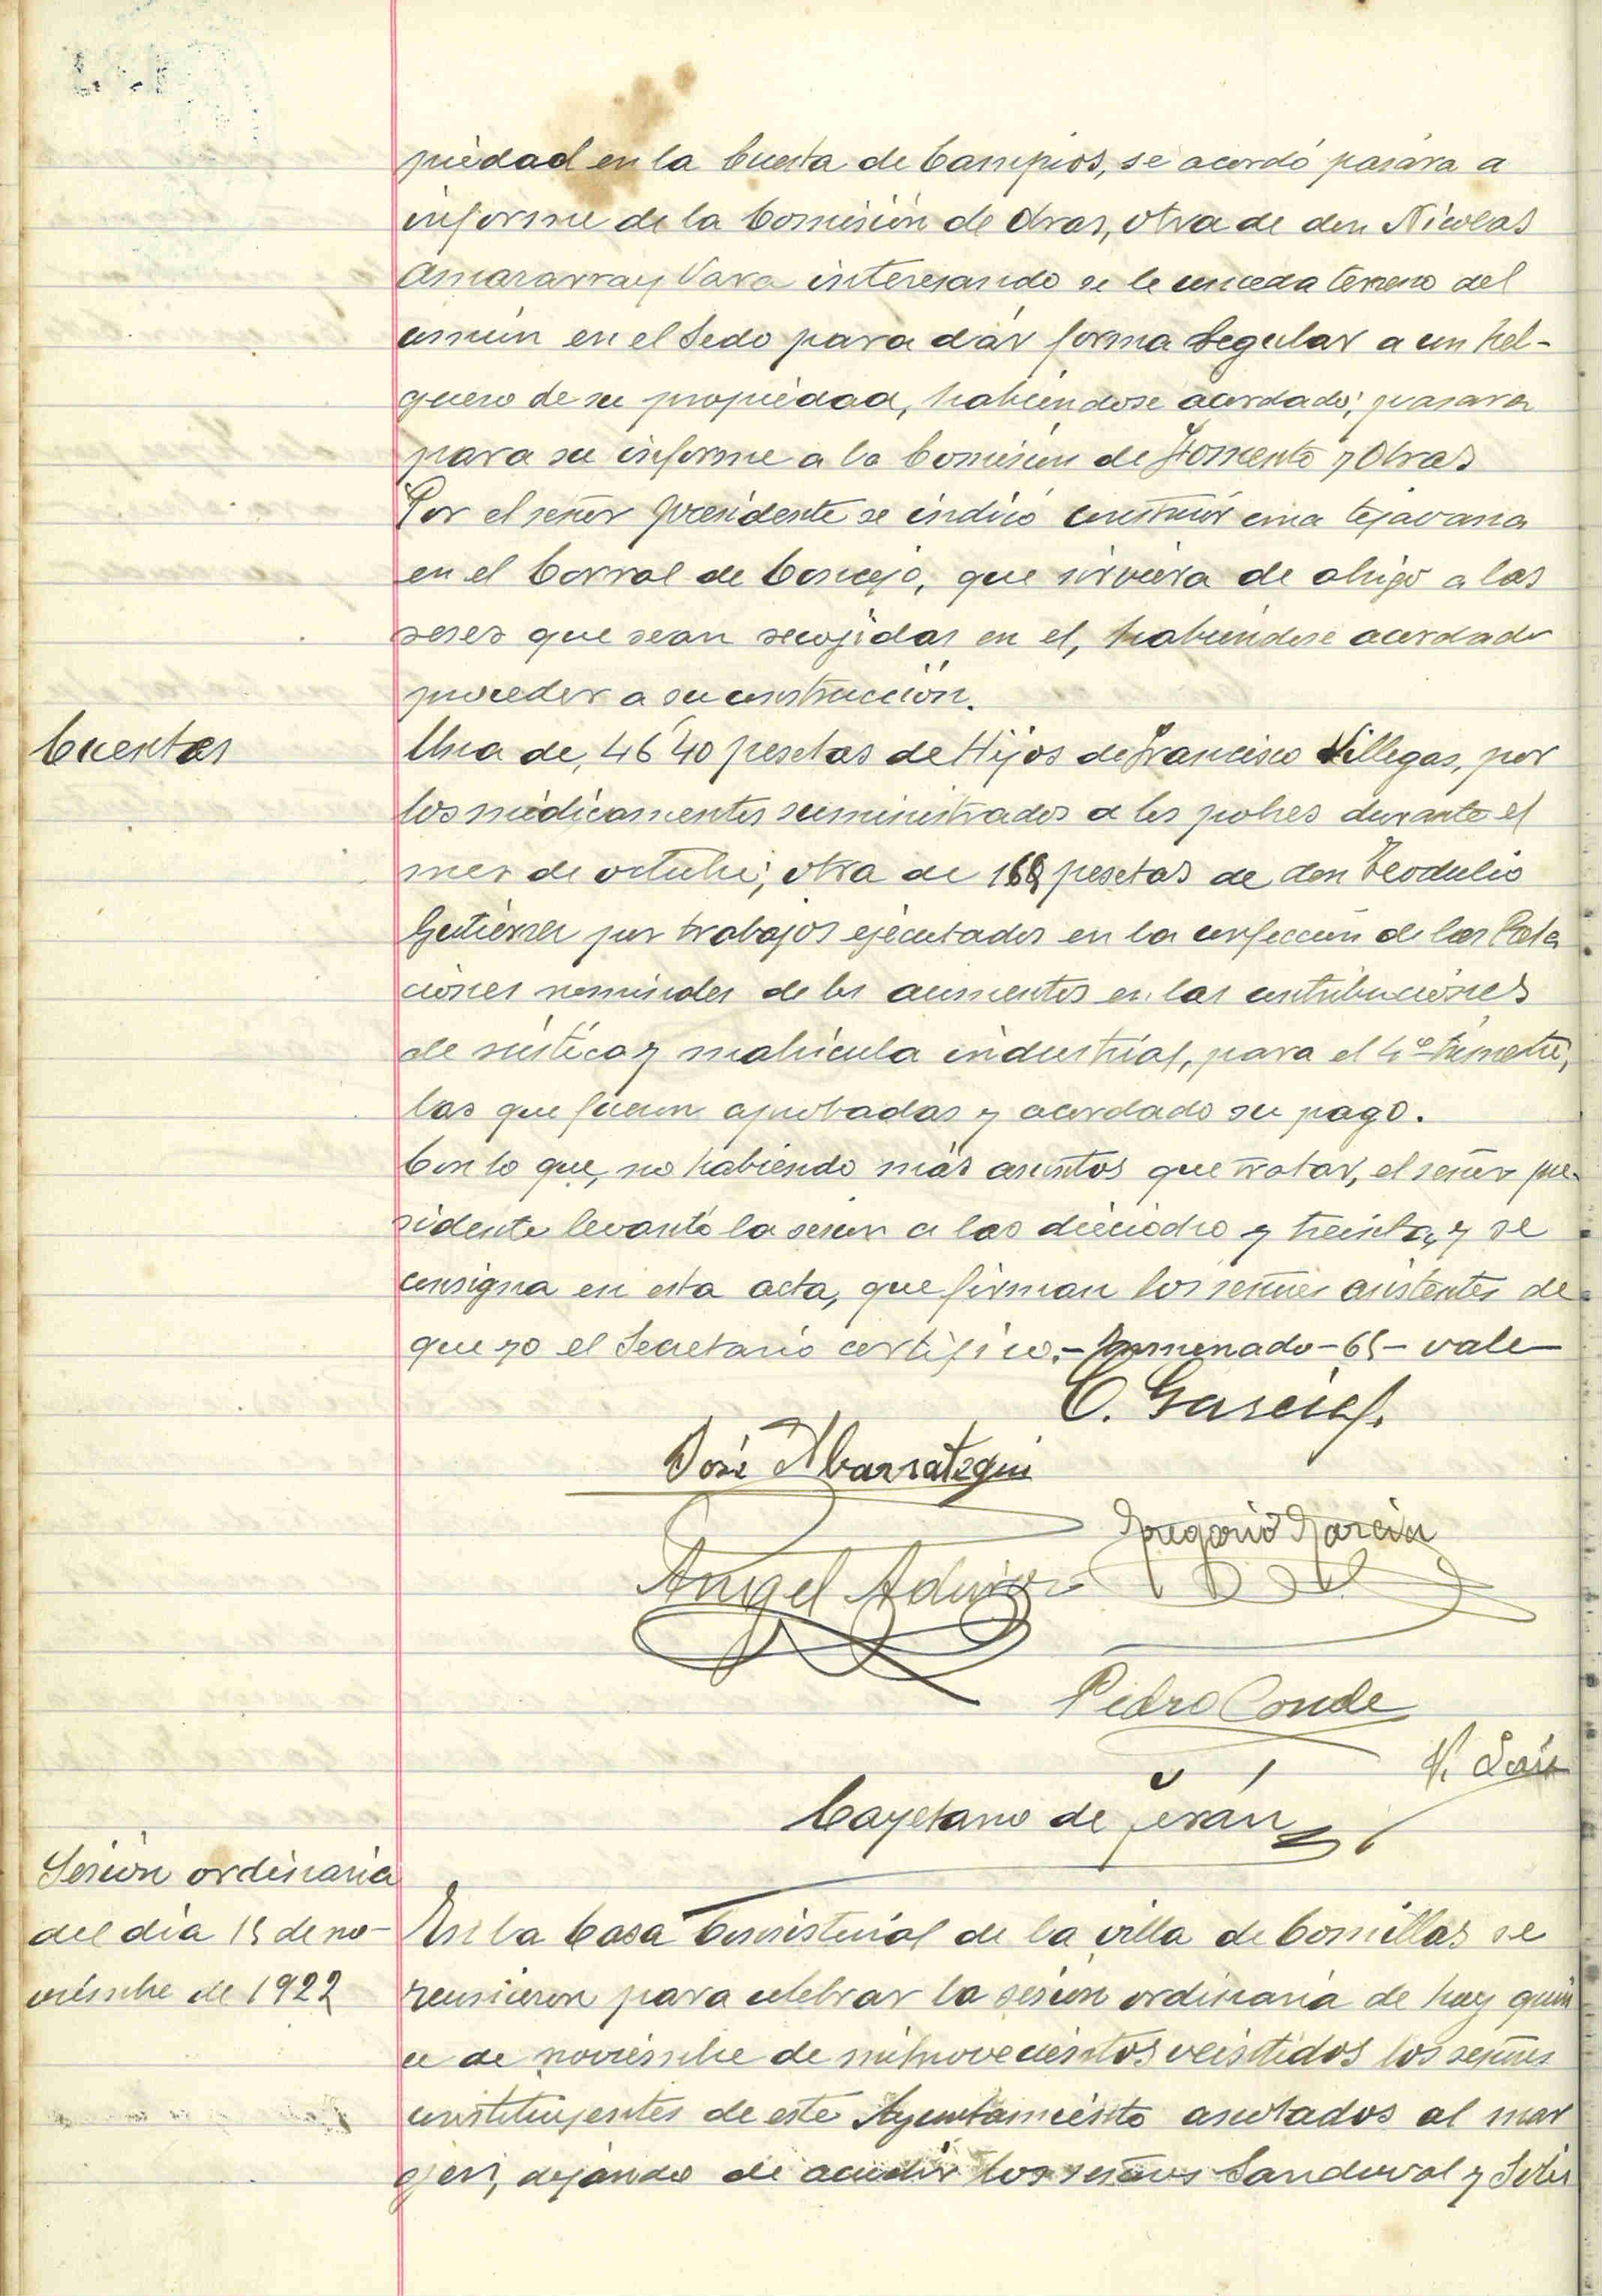 piedad en la Cuesta de Campios, se acordó pasara a
informe de la Comisión de Obras, otra de don Nicolas
Amararray Vara interesando se le conceda terreno del
común en el Sedo para dár forma regular a un hel-
guero de su propiedad, habiendose acordado; pasara
para su informe a la Comisión de Fomento y Obras
Por el señor presidente se indicó construír una tejavana
en el Corral de Concejo, que sirviera de abrigo a las
reses que sean recojidas en el, habiendose acordado
proceder a su construcción.
Cuentas
Una de, 46'40 pesetas de Hijos de Francisco Villegas, por
los medicamentos suministrados a los pobres durante el
mes de octubre; otra de pesetas de don Teodulio
Gutierrez por trabajos ejecutados en la confección de las Rela
ciones nominales de los aumentos en las contribuciones
de rústica y matricula industrial, para el 4º trimestre,
las que fueron aprobadas y acordado su pago.
Con lo que, no habiendo más asuntos que tratar, el señor pre-
sidente levantó la sesion a las dieciocho y treinta, y se
consigna en esta acta, que firman los señores asistentes de
que yo el Secretario certifico.- Enmendado - 65 - vale
C. Garcia
José Abarrategui
Gregorio Garcia
Angel
Pedro Conde
Cayetano de Terán
Sesion ordinaria
del dia 15 de no-
viembre de 1922
En la Casa Consistorial de la villa de Comillas se
reunieron para celebrar la sesion ordinaria de hoy quin
ce de noviembre de mil novecientos veintidos los señores
constituyentes de este Ayuntamiento anotados al mar
gen, dejando de acudir los señores Sandoval y